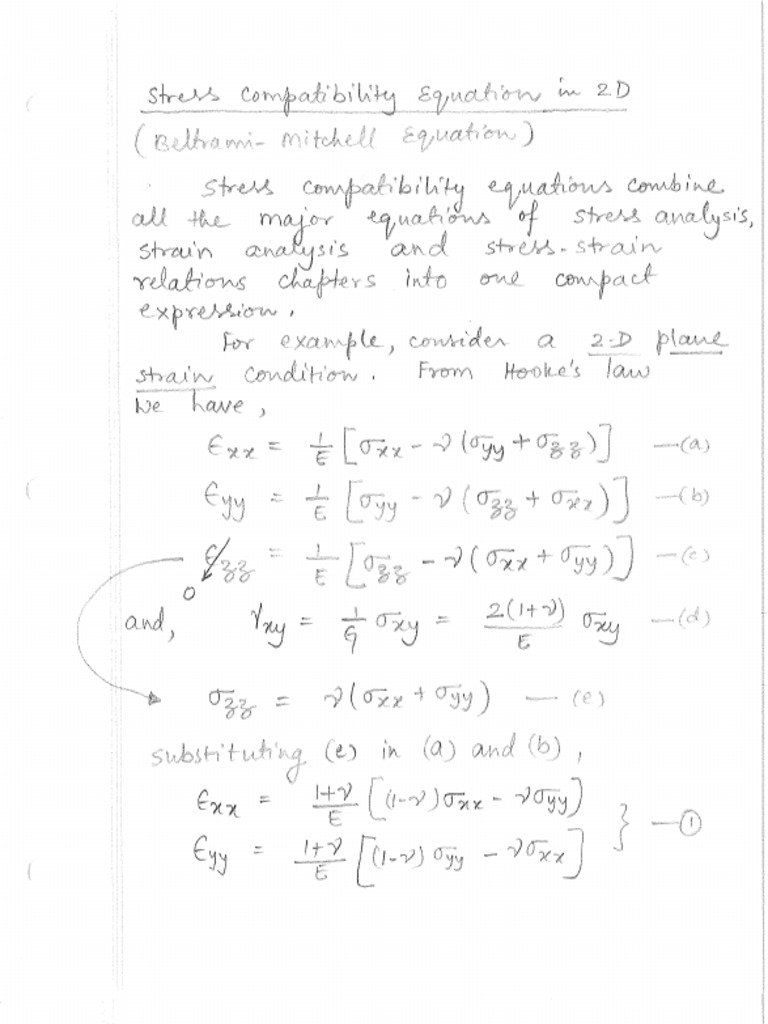 Stress Compatibility Equation in 2D
(Beltrami-Mitchell Equation)
Stress compatibility equations combine
all the major equations of stress analysis,
strain analysis and stress-strain
relations chapters into one compact
expression.
For example, consider a 2-D plane
strain condition. From Hooke's law
We have,
ϵxx = 1/E [σxx - ν (σyy + σzz)] —(a)
ϵyy = 1/E [σyy - ν (σzz + σxx)] —(b)
ϵzz = 1/E [σzz - ν (σxx + σyy)] —(c)
0
and, γxy = 1/G σxy = 2(1+ν)/E σxy —(d)
σzz = ν(σxx + σyy) — (e)
substituting (e) in (a) and (b),
ϵxx = 1+ν/E [(1-ν)σxx - νσyy]
} —①
ϵyy = 1+ν/E [(1-ν)σyy - νσxx]